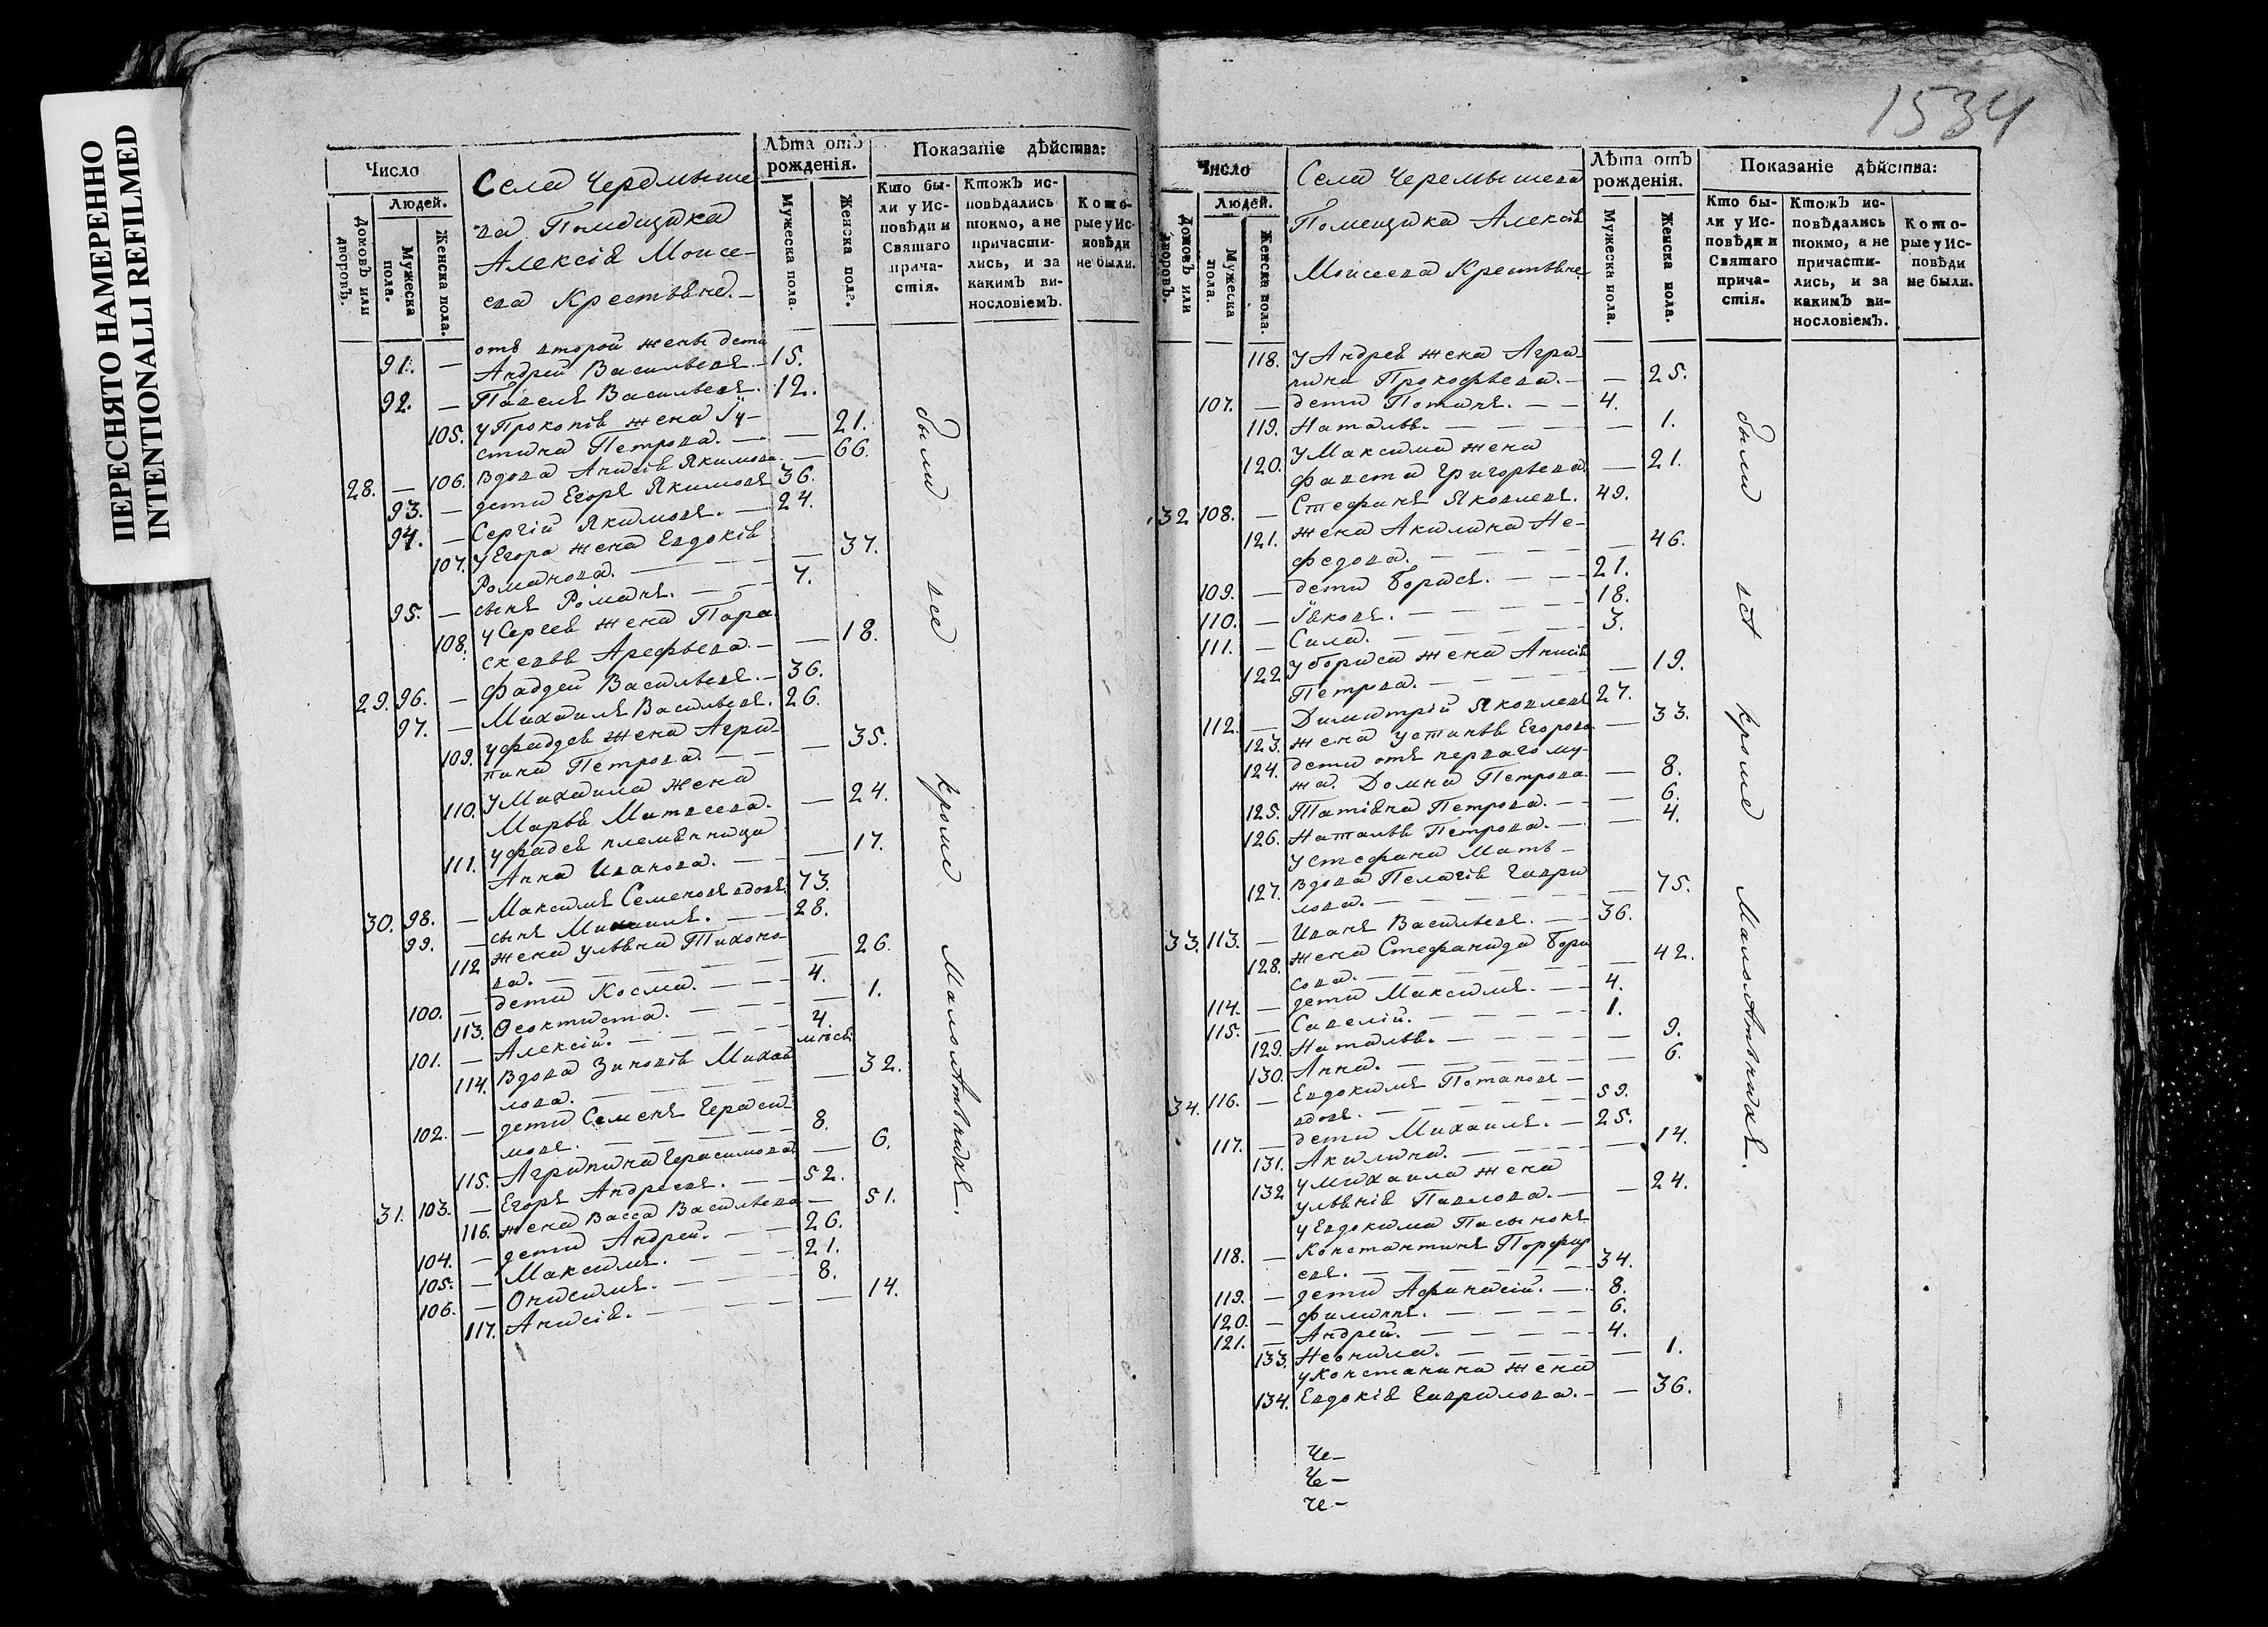 ПЕРЕСНЯТО НАМЕРЕННО
INTENTIONALLI REFILMED
1534
Число
Людей.
Домовъ или дворовъ.
Мужеска пола.
Женска пола.
Села Черемыше
ва Помещика
Алексѣя Моисе-
ева Крестьяне. —
Лѣта отъ рожденія.
Мужеска пола.
Женска пола.
Показаніе дѣйства:
Кто бы-
ли у Ис-
повѣди и
Святаго
прича-
стія.
Ктожъ ис-
повѣдались
токмо, а не
причасти-
лись, и за
какимъ ви-
нословіемъ.
Кото-
рые у Ис-
повѣди
не были.
отъ второй жены дети
91. — Андрей Васильевъ. — 15.
92. — Павелъ Васильевъ. 12.
105. у Прокопія жена Іу-
стина Петрова. — — 21.
28. — 106. Вдова Анисія Якимова — 66.
93. — дети Егоръ Якимовъ 36.
94. — Сергій Якимовъ. — 24.
107. у Егора жена Евдокія
Романова. — — — 37.
95. — сынъ Романъ. — — 7.
108. у Сергея жена Пара
скевья Арефьева. — — 18.
29. 96. — Фаддей Васильевъ. — 36.
97. — Михаилъ Васильевъ. 26.
109. у Фаддея жена Агри-
пина Петрова. — — — 35.
110. у Михаила жена
Марья Матвеева. — 24.
111. у Фадея племянница
Анна Иванова. — — — 17.
30. 98. — Максимъ Семеновъ вдовъ. 73.
99. — сынъ Михаилъ. — — 28.
112 жена Ульяна Тихоно-
ва. — — — — — 26.
100. — дети Косма. — — — 4.
113. Ѳеоктиста. — — — 1.
101. — Алексій. — — — — 4. мѣсяц.
114. Вдова Зиновія Михай
лова. — — — — 32.
102. — дети Семенъ Гераси-
мовъ. — — — — — 8.
115. Агрипина Герасимова — 6.
31. 103. — Егоръ Андреевъ. — — 52.
116. жена Васса Васильева — 51.
104. — дети Андрей. — — — 26.
105. — Максимъ. — — — — 21.
106. — Онисимъ. — — — — 8.
117. Анисія. — — — — — 14.
были все кроме Малолѣтнихъ.
Число
Людей.
Домовъ или дворовъ.
Мужеска пола.
Женска пола.
Села Черемышева
Помещика Алексѣя
Моисеева Крестьяне
Лѣта отъ рожденія.
Мужеска пола.
Женска пола.
Показаніе дѣйства:
Кто бы-
ли у Ис-
повѣди и
Святаго
прича-
стія.
Ктожъ ис-
повѣдались
токмо, а не
причасти-
лись, и за
какимъ ви-
нословіемъ.
Кото-
рые у Ис-
повѣди
не были.
118. у Андрея жена Агри-
пина Прокофьева. — — 25.
107. — дети Потапъ. — — 4.
119. Наталья. — — — — 1.
120. у Максима жена
Фавста Григорьева. — 21.
32 108. — Стефанъ Яковлевъ. 49.
121. жена Акилина Не-
федова. — — — — — 46.
109. — дети Борисъ. — — — 21.
110. — Іяковъ. — — — — 18.
111. — Сила. — — — — — 3.
122 у Бориса жена Анисія
Петрова. — — — — — 19.
112. — Димитрій Яковлевъ 27.
123. жена Устинья Егорова — 33.
124. дети отъ перваго му-
жа. Домна Петрова. — 8.
125. Татіяна Петрова. — — — 6.
126. Наталья Петрова. — — 4.
у Стефана Мать —
127. Вдова Пелагія Гаври
лова. — — — — — 75.
33. 113. — Иванъ Васильевъ. — — 36.
128. жена Стефанида Бори
сова. — — — — — 42.
114. — дети Максимъ. — — 4.
115. — Савелій. — — — — 1.
129. Наталья. — — — — — 9.
130. Анна. — — — — — — 6.
34. 116. — Евдокимъ Потаповъ —
вдовъ. — — — — — 59.
117. — дети Михаилъ. — 25.
131. Акилина. — — — — — 14.
132 у Михаила жена
Ульянія Павлова. — — 24.
у Евдокима Пасынокъ
118. — Константинъ Порфир
евъ. — — — — — — 34.
119. — дети Афанасій. — — 8.
120. — Филиппъ. — — — — 6.
121. — Андрей. — — — — — 4.
133. Неонила. — — — — — 1.
у Констанина жена
134. Евдокія Гаврилова. — — 36.
были всѣ кроме Малолѣтнихъ.
Че —
Че —
Че —